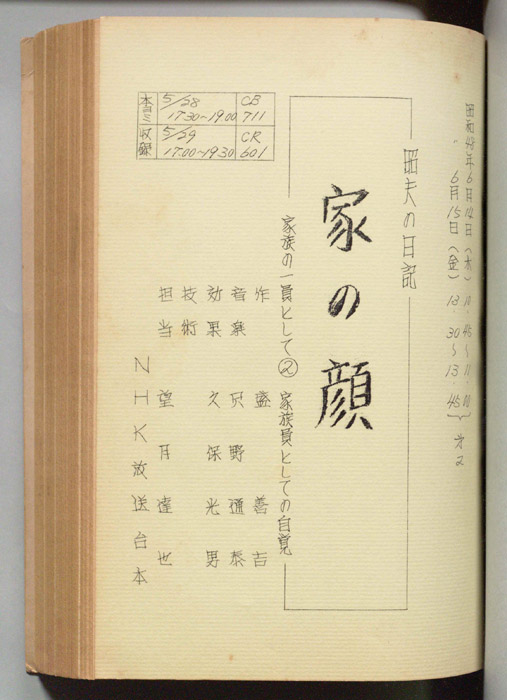 昭和48年6月14日（木）10・45〜11・00
〃 6月15日（金）13・30〜13・45
昭夫の日記
家の顔
家族の一員として② 家族員としての自覚
作 盛善吉
音楽 只野通泰
効果 久保光男
技術
担当 望月達也
NHK放送台本
本ヨミ 5/28 17.30~19.00 CB 711
収録 5/29 17.00~19.30 CR 601